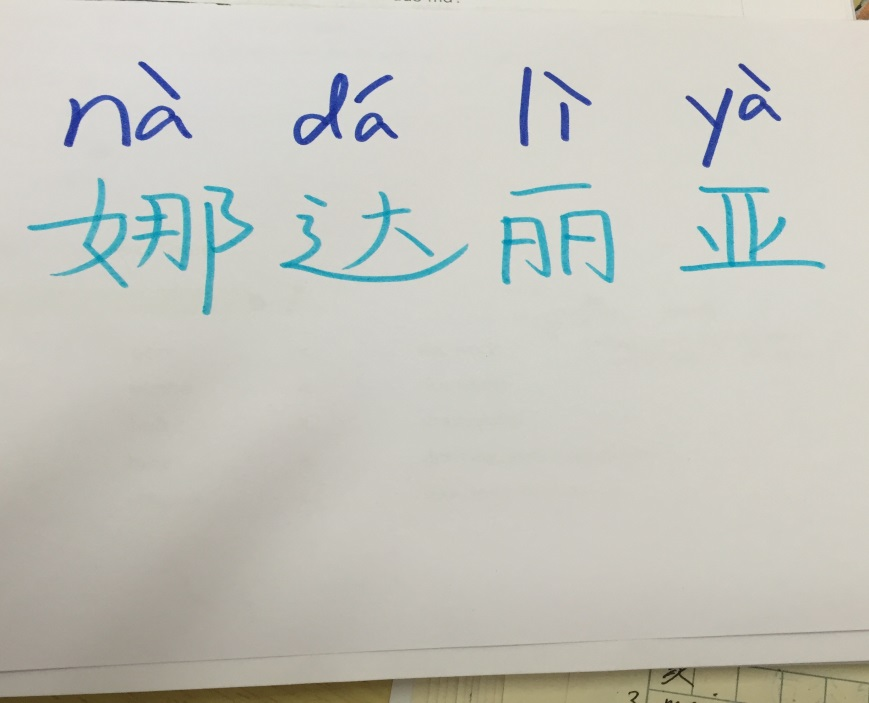 nà dá lì yà
娜达丽亚